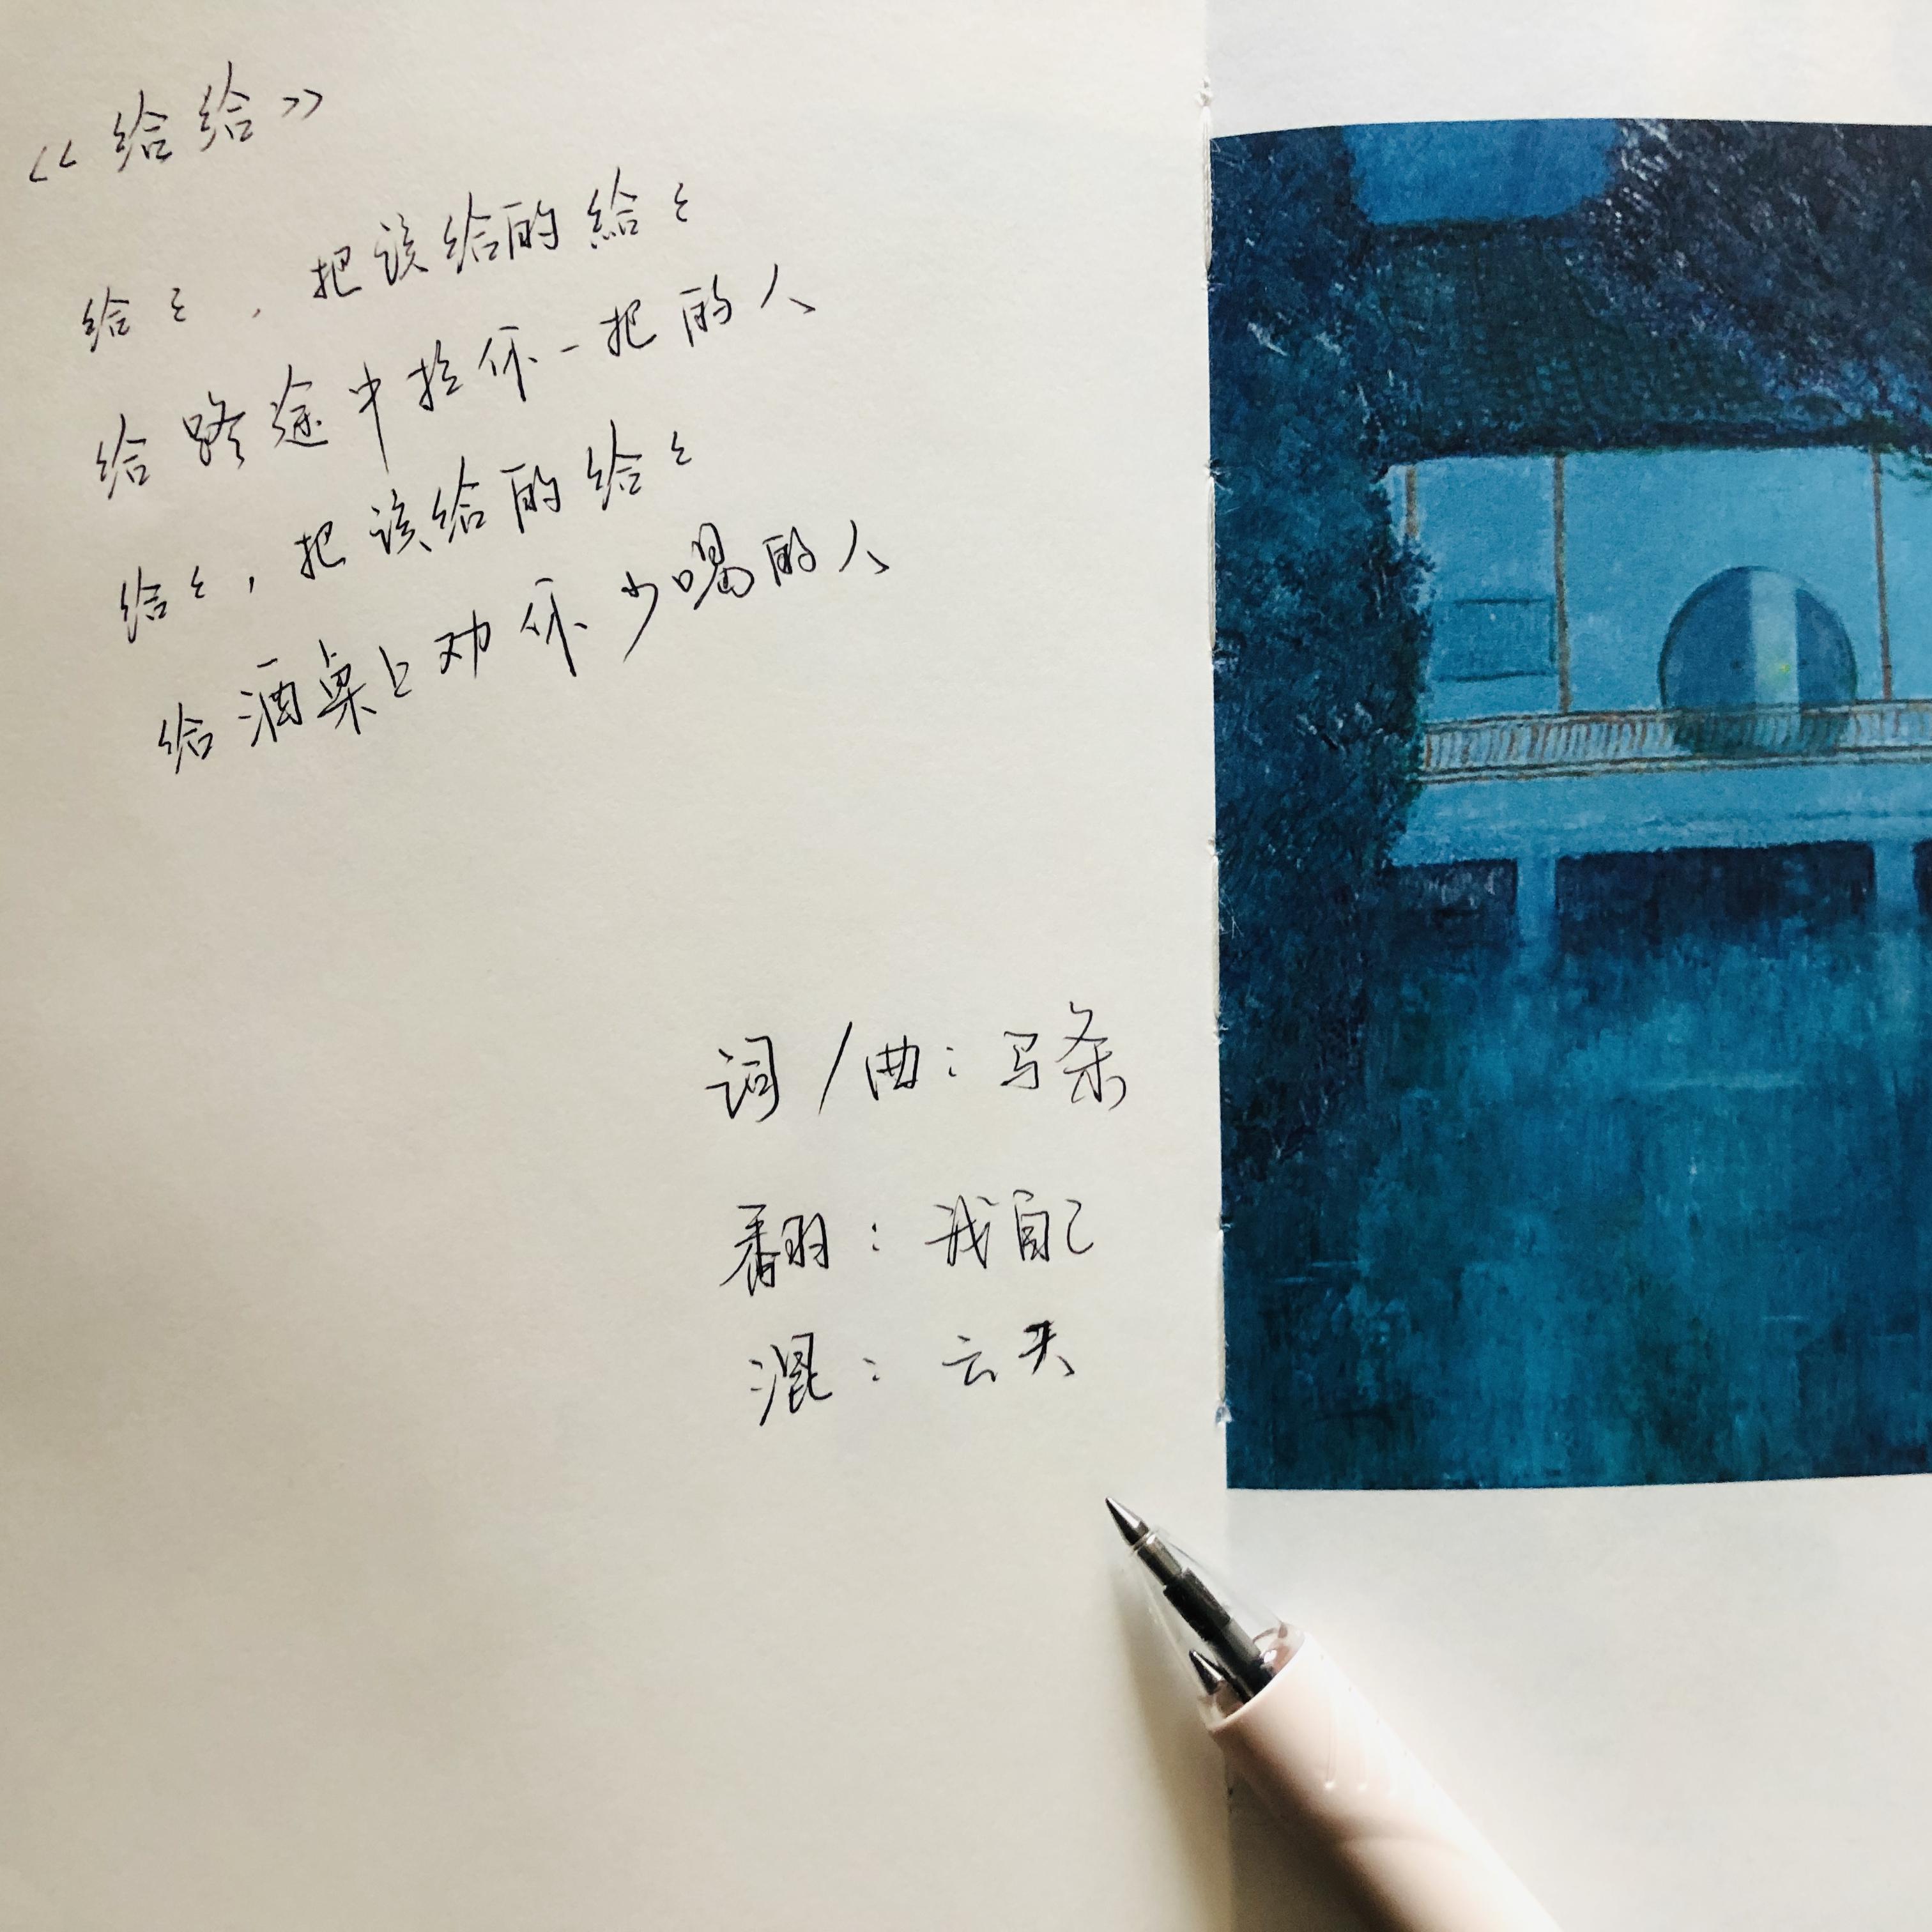 《给给》
给々，把该给的给々
给路途中拉你一把的人
给々，把该给的给々
给酒桌上劝你少喝的人
词/曲：马条
翻：我自己
混：云天